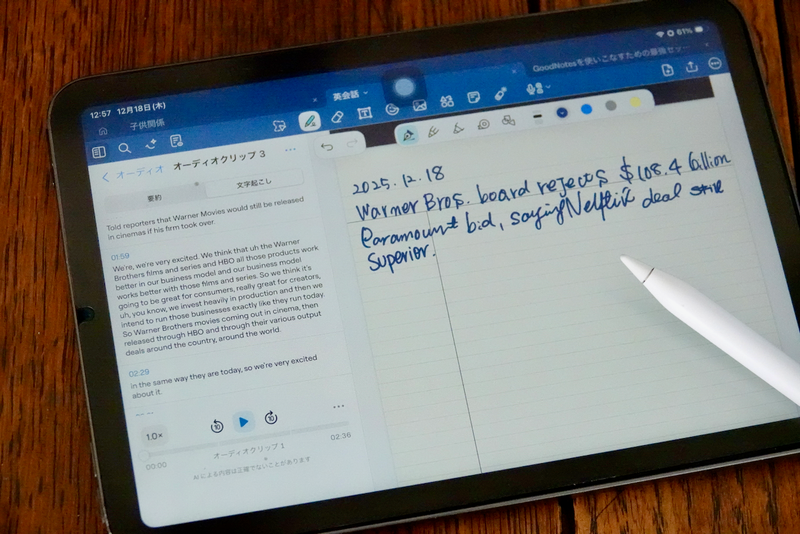 12:57 12月18日(木)
61%
子供関係
英会話
GoodNotesを使いこなすための最強セッ…
オーディオ
オーディオクリップ 3
要約
文字起こし
Told reporters that Warner Movies would still be released
in cinemas if his firm took over.
01:59
We're, we're very excited. We think that uh the Warner
Brothers films and series and HBO all those products work
better in our business model and our business model
works better with those films and series. So we think it's
going to be great for consumers, really great for creators,
uh, you know, we invest heavily in production and then we
intend to run those businesses exactly like they run today.
So Warner Brothers movies coming out in cinema, then
released through HBO and through their various output
deals around the country, around the world.
02:29
in the same way they are today, so we're very excited
about it.
1.0×
10
10
オーディオクリップ 1
00:00
02:36
AIによる内容は正確でないことがあります
2025.12.18
Warner Bros. board rejects $108.4 billion
Paramount bid, saying Netflix deal still
superior.